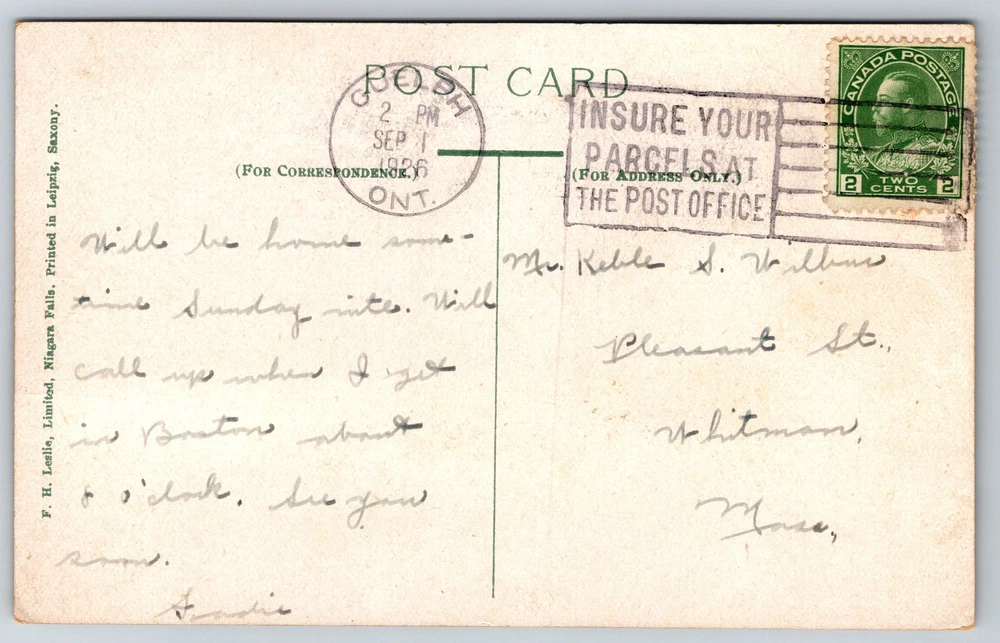 POST CARD
GUELPH
2 PM
SEP 1
1926
ONT.
INSURE YOUR
PARCELS AT
THE POST OFFICE
CANADA POSTAGE
2 TWO CENTS 2
(FOR CORRESPONDENCE.)
(FOR ADDRESS ONLY.)
Will be home some-
time Sunday nite. Will
call up when I get
in Boston about
8 o'clock. See you
soon.
Mr. Keble S. Wilbur
Pleasant St.,
Whitman,
Mass.,
F. H. Leslie, Limited, Niagara Falls. Printed in Leipzig, Saxony.